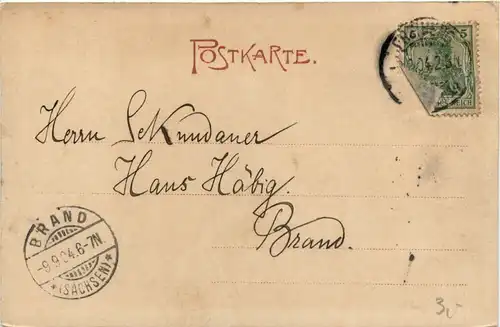 POSTKARTE.
5
REICH
Herrn Sekundaner
Hans Häbig.
Brand.
BRAND
-9.9.04.6-7N.
*(SACHSEN)*
3,-